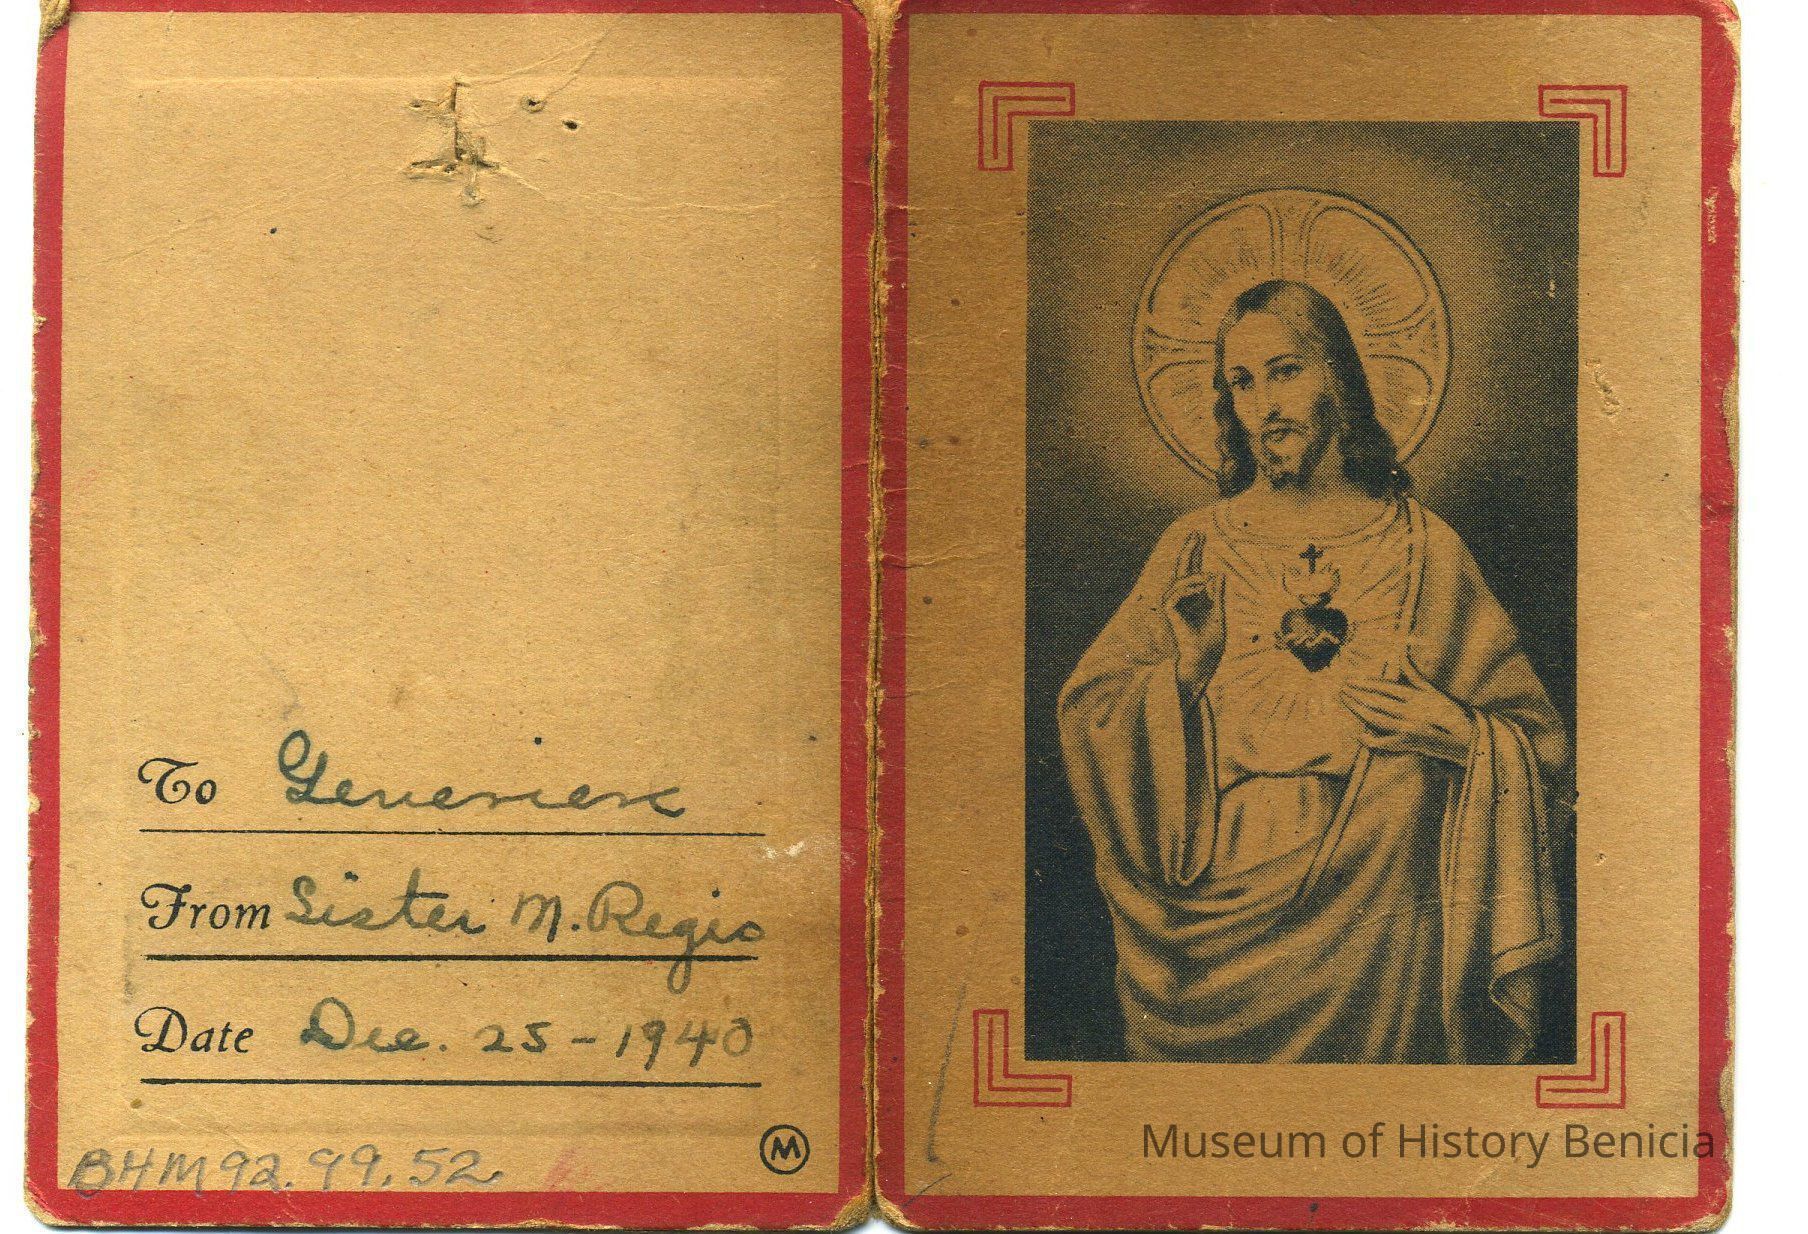 To Genevieve
From Sister M. Regis
Date Dec. 25 - 1940
M
BHM92.99.52
Museum of History Benicia